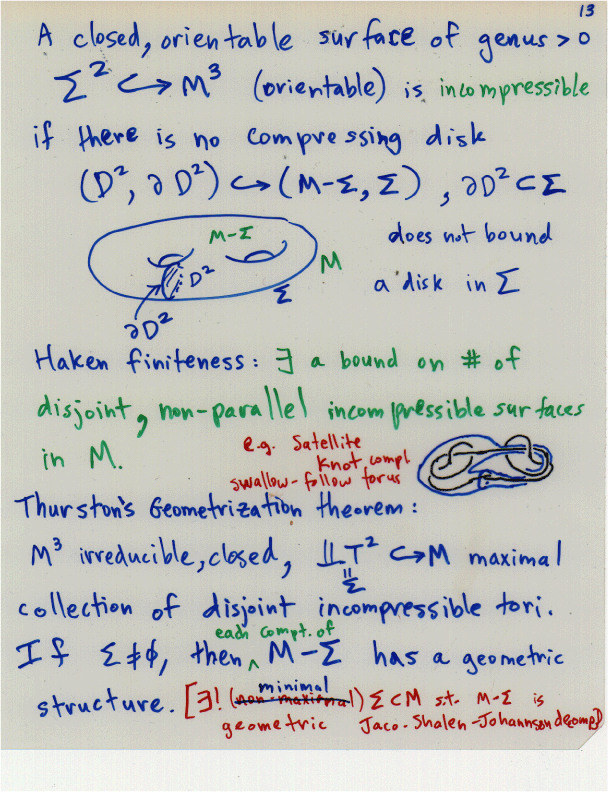 13
A closed, orientable surface of genus > 0
Σ² ↪ M³ (orientable) is incompressible
if there is no compressing disk
(D², ∂D²) ↪ (M-Σ, Σ) , ∂D² ⊂ Σ
does not bound
a disk in Σ
M-Σ
M
D²
Σ
∂D²
Haken finiteness: ∃ a bound on # of
disjoint, non-parallel incompressible surfaces
in M.
e.g. Satellite
knot compl
swallow-follow torus
Thurston's Geometrization theorem:
M³ irreducible, closed, ⊥⊥T² ↪ M maximal
=
Σ
collection of disjoint incompressible tori.
each compt. of
If Σ ≠ ∅, then ^ M-Σ has a geometric
structure. [∃! (non-maximal minimal) Σ ⊂ M s.t. M-Σ is
geometric Jaco-Shalen-Johannson decomp]